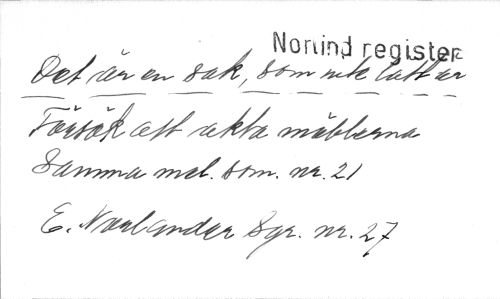 Norlind register
Det är en sak, som icke lätt är
Försök att akta möblerna
Samma mel. som. nr. 21
E. Norlander Sgr. nr. 27